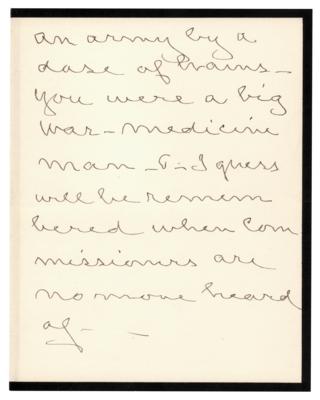 an army by a
dose of brains —
you were a big
war - medicine
man — I guess
will be remem
bered when com
missioners are
no more heard
of — —